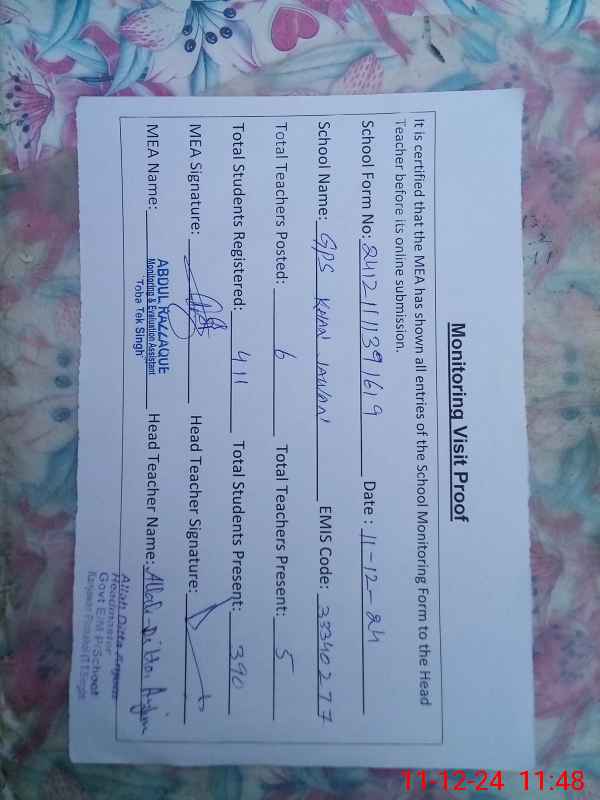 Monitoring Visit Proof
It is certified that the MEA has shown all entries of the School Monitoring Form to the Head
Teacher before its online submission.
School Form No: 2412111391619 Date : 11-12-24
School Name: GPS KHAN JAWAN EMIS Code: 33340277
Total Teachers Posted: 6 Total Teachers Present: 5
Total Students Registered: 411 Total Students Present: 390
MEA Signature: Head Teacher Signature:
MEA Name: ABDUL RAZZAQUE Head Teacher Name: Allah Ditta Anjum
Monitoring & Evaluation Assistant
Toba Tek Singh
Allah Ditta
Headmaster
Govt E/M P/School
11-12-24 11:48